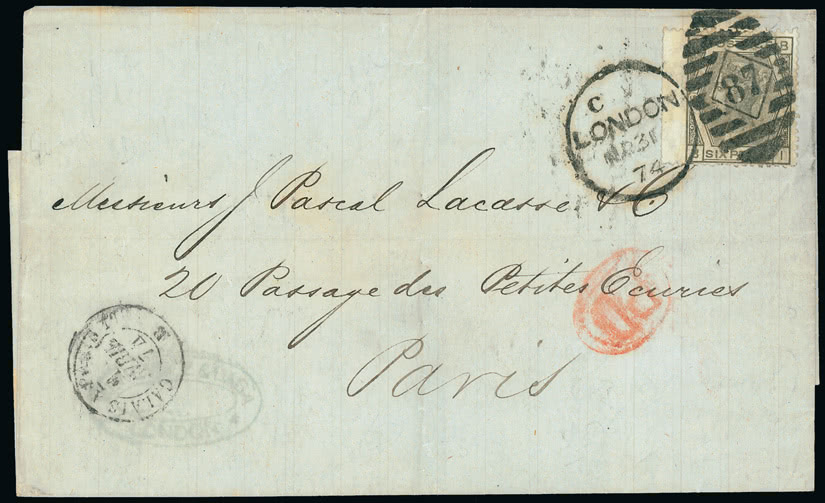 C
LONDON
MR31
74
87
B
SIXP
I
Messieurs J Pascal Lacasse & Co
20 Passage des Petites Ecuries
Paris
PD
CALAIS
LONDON